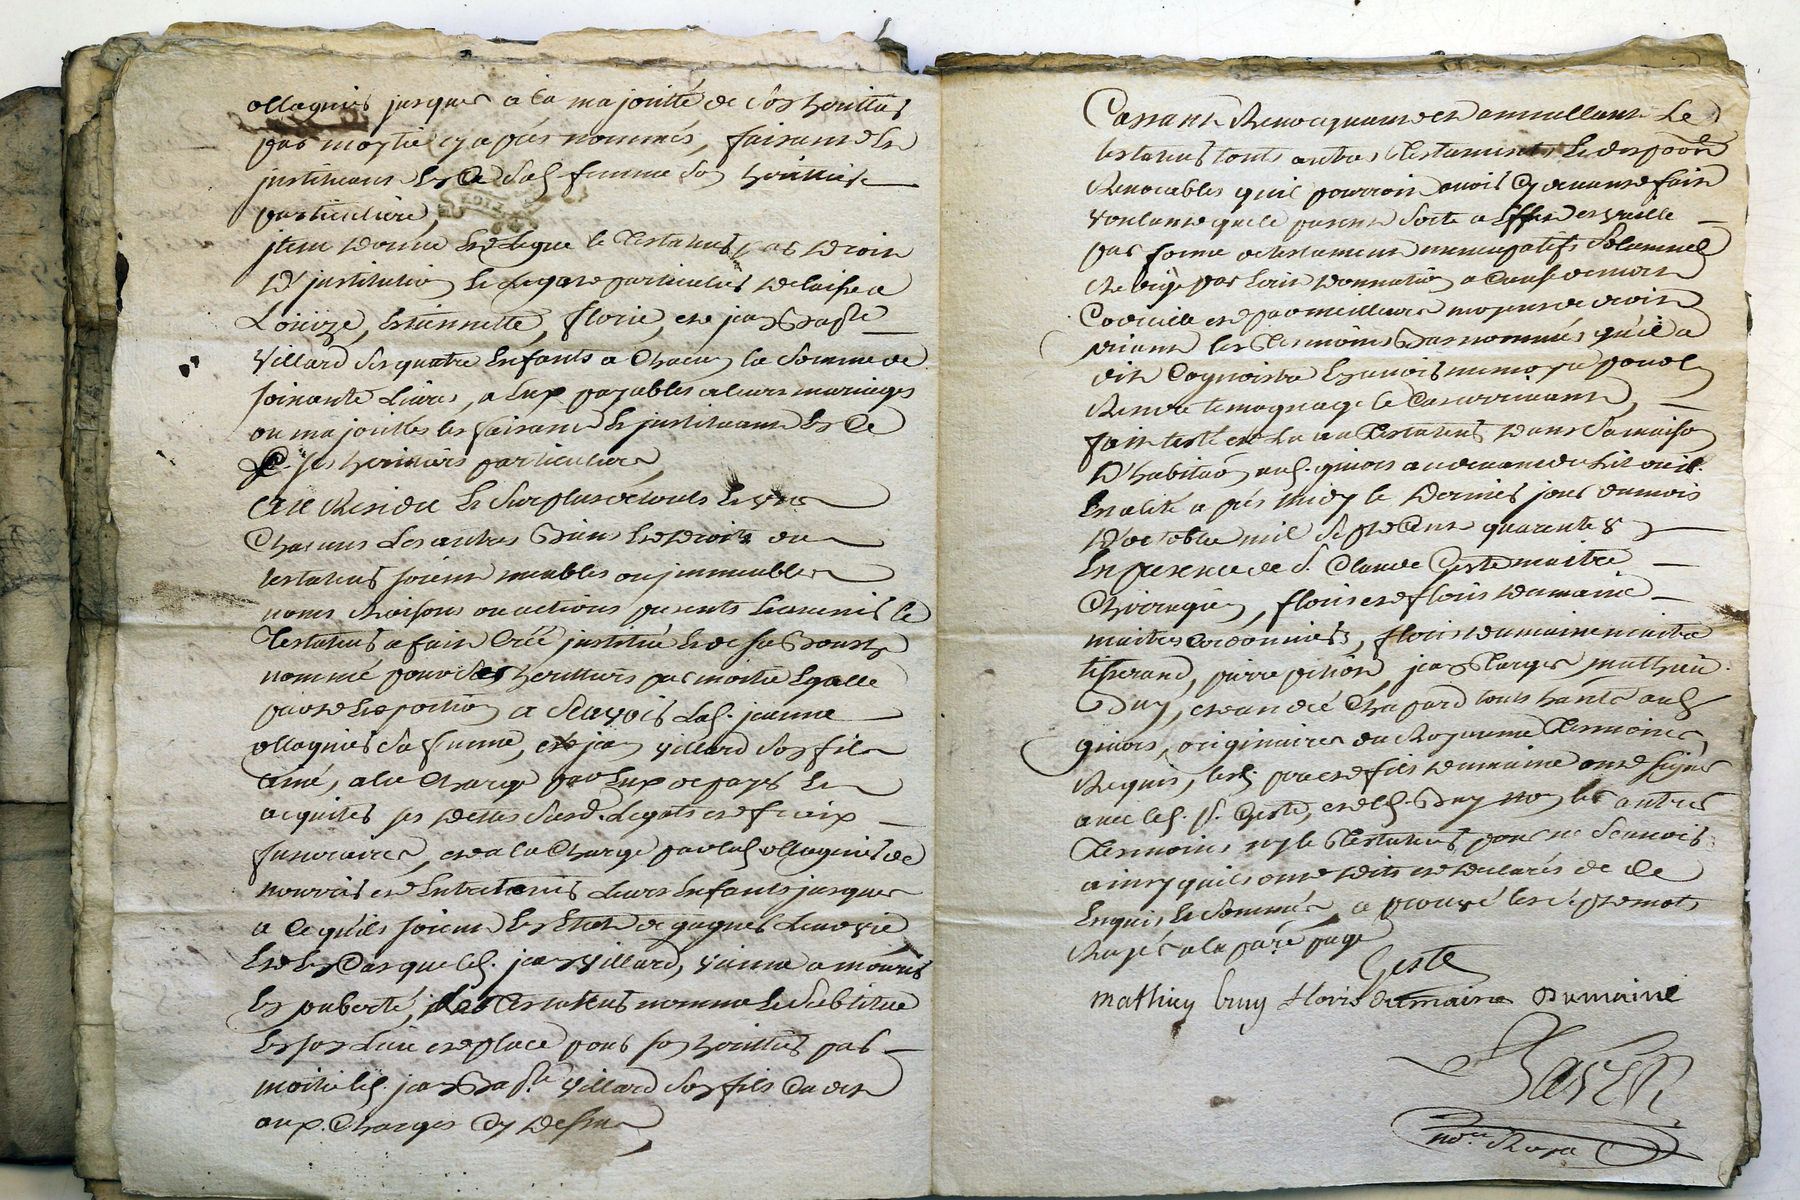 ollagnier jusques a la majorité de son heritier
par moytié cy apres nommés, faisant et
instituant en ce sad. femme son heritiere
particuliere,
item donne et legue le testateur par droit
d'institution et legat particulier delaisse a
Loüize, estiennette, florie, et jean Bapte
villard ses quatre enfants a chacun la somme de
soixante livres, a eux payables a leurs mariages
ou majorités les faisant et instituant en ce
ses heritiers particuliers,
et au residu et surplus de touts et uns
chacuns les autres biens et droits du
testateur soient meubles ou immeubles
noms raisons ou actions presents et avenir le
testateur a fait créé institué et de sa bouche
nommé pour ses heritiers par moitié egalle
part et portion a sçavoir lad. jeanne
ollagnier sa femme, et jean villard son fils
ainé, a la charge par eux de payer et
acquiter ses dettes susd. legats et fraix
funeraires, et a la charge par lad. ollagnier de
nourrir et entretenir leurs enfants jusques
a ce qu'ils soient en etat de gagner leur vie
et en cas que led. jean villard, vienne a mourir
en puberté, led. testateur nomme et substitue
en son lieu et place pour son heritier par
moitié led. jean Bapte villard son fils cadet
aux charges cy dessus
Cassant revocquant et annullant le
testateur touts autres testaments et dispoons
revocables quil pourroit avoir cy devant fait
voulant que le present sorte a effet et vaille
par forme de testament nuncupatif solemnel
redigé par écrit donnation a cause de mort
codicille et par meilleurs moyens de droit
priant les tesmoins bas nommés qu'il a
dit cognoistre en avoir memoyre pour en
rendre temoagnage le cas arrivant,
fait leu et au testateur dans sa maison
d'habitaon aud. givors au devant du lit ou il
est alité apres midy le dernier jour du mois
d'octobre mil sept cent quarante 8
En presence de s. Claude Geste maitre
Chirurgien, floris et floris dumaine
maitres cordonniers, floris dumaine maitre
tisserand, pierre pition, jean farges, mathieu
Bruy, et andré Chapard touts habits aud.
givors, originaires du Royaume tesmoins
requis, lesd. pere et fils dumaine ont signé
avec led. s. Geste, et led. Bruy non les autres
tesmoins ny le testateur pour ne sçavoir
ainsy quils ont dits et declarés de ce
enquis et sommés a prouvé les sept mots
rayés a la pare page
Geste
mathieu bruy floris dumaine Dumaine
nore Royal